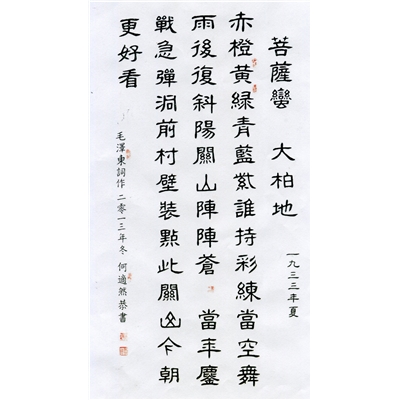 菩薩蠻 大柏地
一九三三年夏
赤橙黃綠青藍紫誰持彩練當空舞
雨後復斜陽關山陣陣蒼 當年鏖
戰急彈洞前村壁裝點此關山今朝
更好看
毛澤東詞作 二零一三年冬 何適然恭書